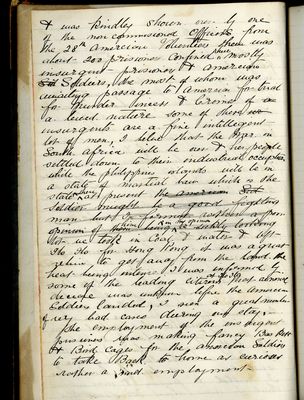 I was kindly shown over by one
of the non commissioned officers from
the 28th American Volunteers there was
about 200 prisoners confined here mostly
insurgent prisoners & American
Soldiers, the most of whom was
awaiting passage to America for trial
for murder & crimes of
a lewd nature some of them
insurgents are a fine intelligent
lot of men, I believe that the War in
South Africa will be over & the people
settled down to their industrial occupation
while the philippines islands will be in
a state of martial law which is the
state there at present the american
soldier maybe a good fighting
man but I formed rather a poor
opinion of
lot we took in Coal & water & left
Ilo Ilo for Hong Kong it was a great
relief to get away from the land the
heat being intense I was informed by
some of the leading citizens that
decree was unknown before the American
Soldiers landed, I seen a great number
of very bad cases during our stay.
The employment of the insurgent
prisoners was making fancy
& Bird cages for the american Soldiers
to take Back to home as curious
rather a employment.